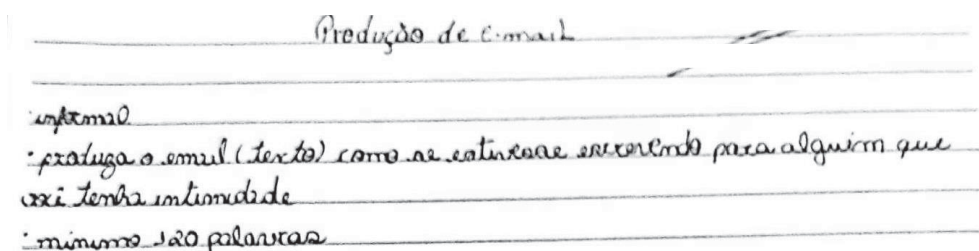 Produção de e-mail
informal
· produza o email (texto) como se estivesse escrevendo para alguém que
tenha intimidade
· minimo 120 palavras